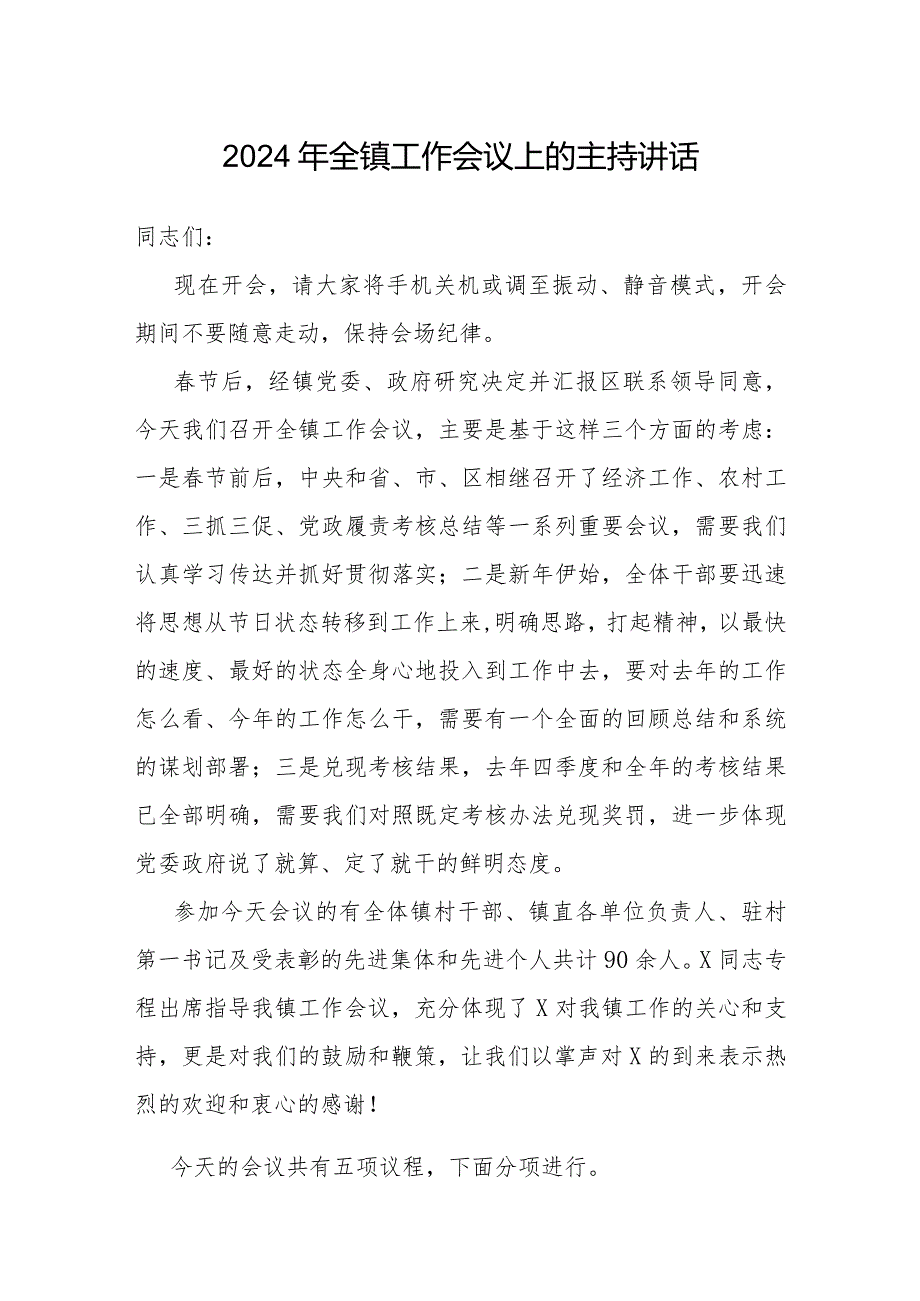 2024年全镇工作会议上的主持讲话
同志们：
现在开会，请大家将手机关机或调至振动、静音模式，开会
期间不要随意走动，保持会场纪律。
春节后，经镇党委、政府研究决定并汇报区联系领导同意，
今天我们召开全镇工作会议，主要是基于这样三个方面的考虑：
一是春节前后，中央和省、市、区相继召开了经济工作、农村工
作、三抓三促、党政履责考核总结等一系列重要会议，需要我们
认真学习传达并抓好贯彻落实；二是新年伊始，全体干部要迅速
将思想从节日状态转移到工作上来,明确思路，打起精神，以最快
的速度、最好的状态全身心地投入到工作中去，要对去年的工作
怎么看、今年的工作怎么干，需要有一个全面的回顾总结和系统
的谋划部署；三是兑现考核结果，去年四季度和全年的考核结果
已全部明确，需要我们对照既定考核办法兑现奖罚，进一步体现
党委政府说了就算、定了就干的鲜明态度。
参加今天会议的有全体镇村干部、镇直各单位负责人、驻村
第一书记及受表彰的先进集体和先进个人共计90余人。X同志专
程出席指导我镇工作会议，充分体现了X对我镇工作的关心和支
持，更是对我们的鼓励和鞭策，让我们以掌声对X的到来表示热
烈的欢迎和衷心的感谢！
今天的会议共有五项议程，下面分项进行。